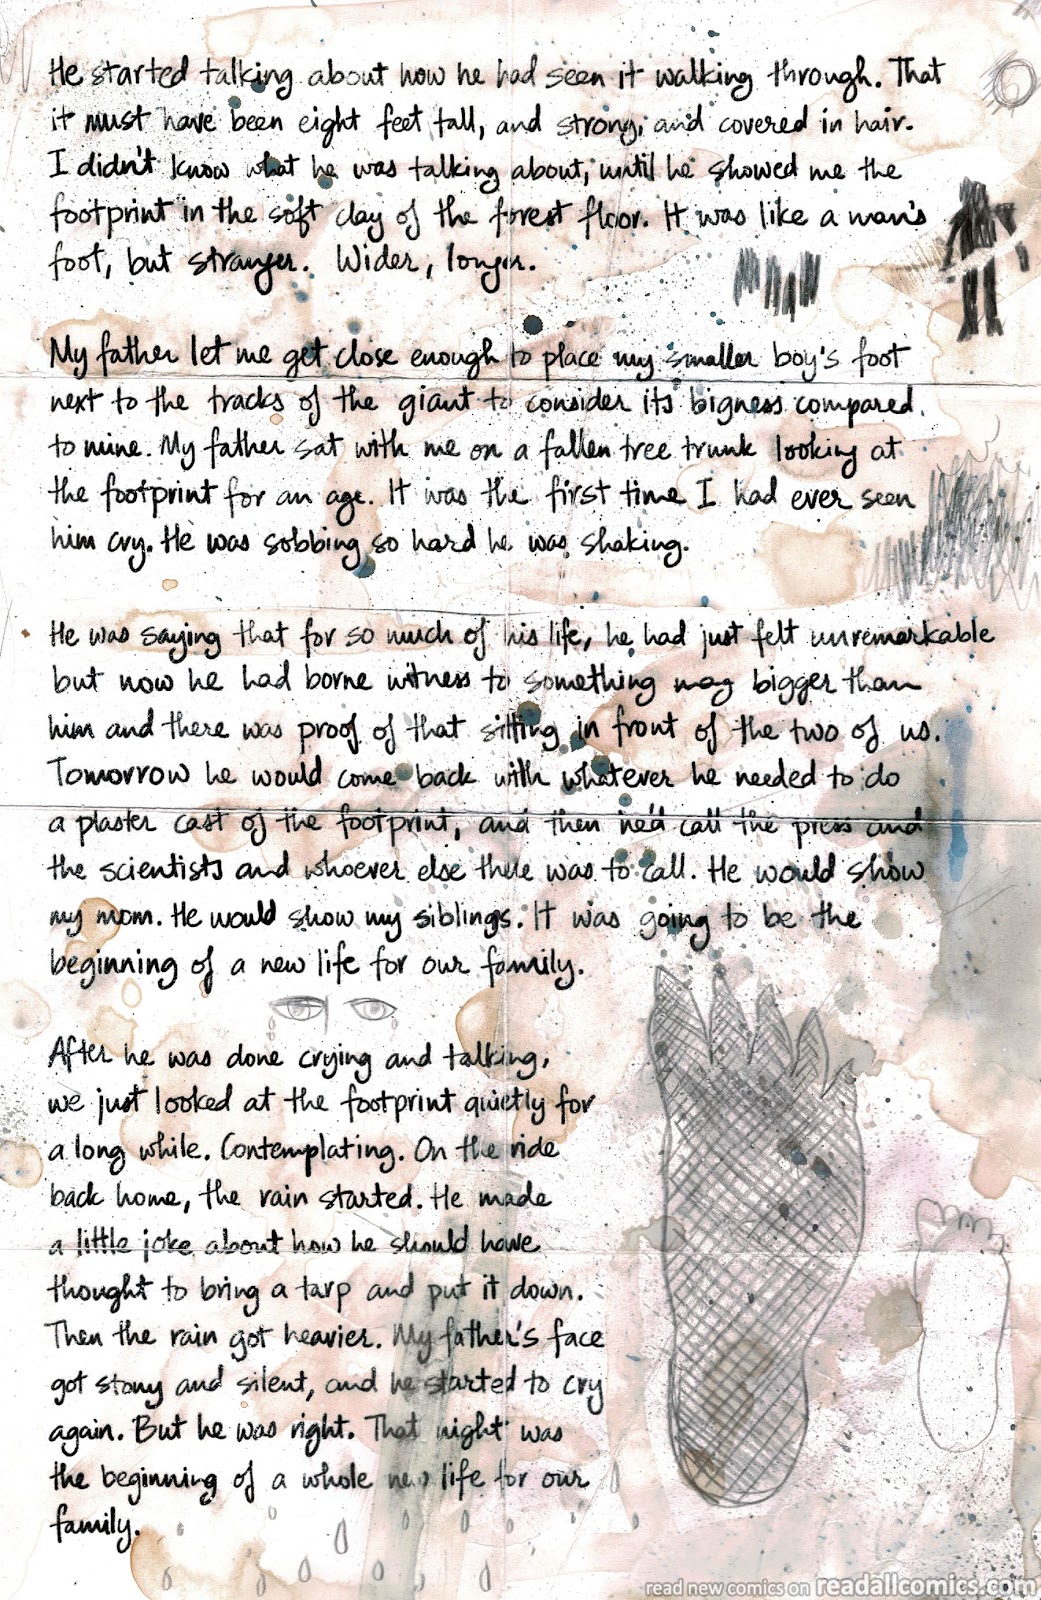 6
He started talking about how he had seen it walking through. That
it must have been eight feet tall, and strong, and covered in hair.
I didn't know what he was talking about, until he showed me the
footprint in the soft clay of the forest floor. It was like a man's
foot, but stranger. Wider, longer.
My father let me get close enough to place my smaller boy's foot
next to the tracks of the giant to consider its bigness compared
to mine. My father sat with me on a fallen tree trunk looking at
the footprint for an age. It was the first time I had ever seen
him cry. He was sobbing so hard he was shaking.
He was saying that for so much of his life, he had just felt unremarkable
but now he had borne witness to something bigger than
him and there was proof of that sitting in front of the two of us.
Tomorrow he would come back with whatever he needed to do
a plaster cast of the footprint, and then he'd call the press and
the scientists and whoever else there was to call. He would show
my mom. He would show my siblings. It was going to be the
beginning of a new life for our family.
After he was done crying and talking,
we just looked at the footprint quietly for
a long while. Contemplating. On the ride
back home, the rain started. He made
a little joke about how he should have
thought to bring a tarp and put it down.
Then the rain got heavier. My father's face
got stony and silent, and he started to cry
again. But he was right. That night was
the beginning of a whole new life for our
family.
read new comics on readallcomics.com